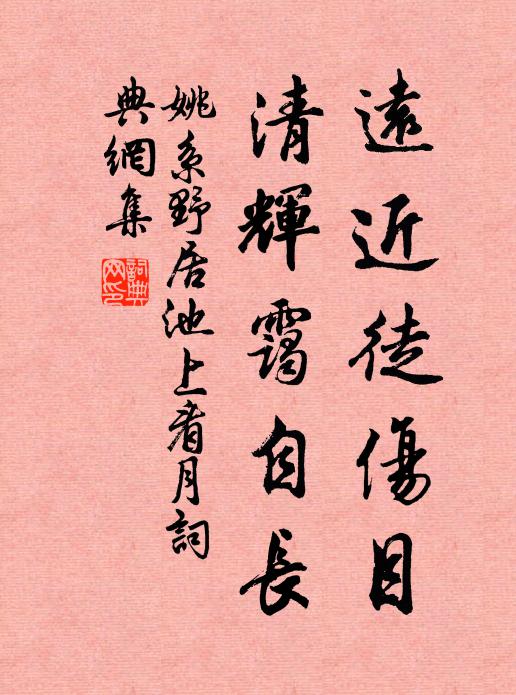 遠近徒傷目
清輝靄自長
姚系野居池上看月詞
典網集
詞典網印